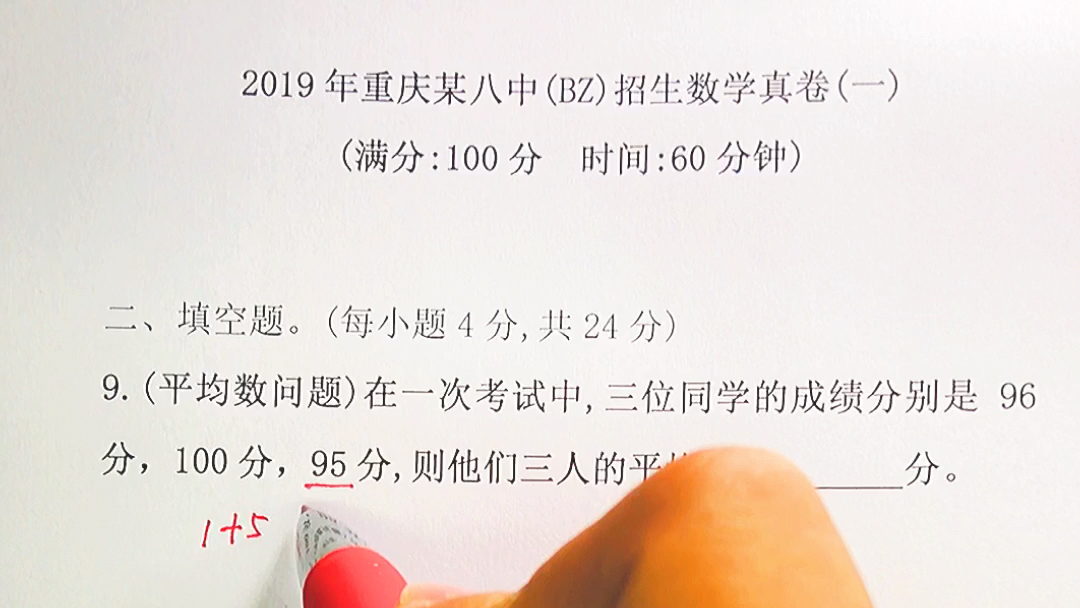 2019年重庆某八中(BZ)招生数学真卷(一)
(满分:100分 时间:60分钟)
二、填空题。(每小题4分,共24分)
9.(平均数问题)在一次考试中,三位同学的成绩分别是 96
分，100分，95分,则他们三人的平 分。
1+5